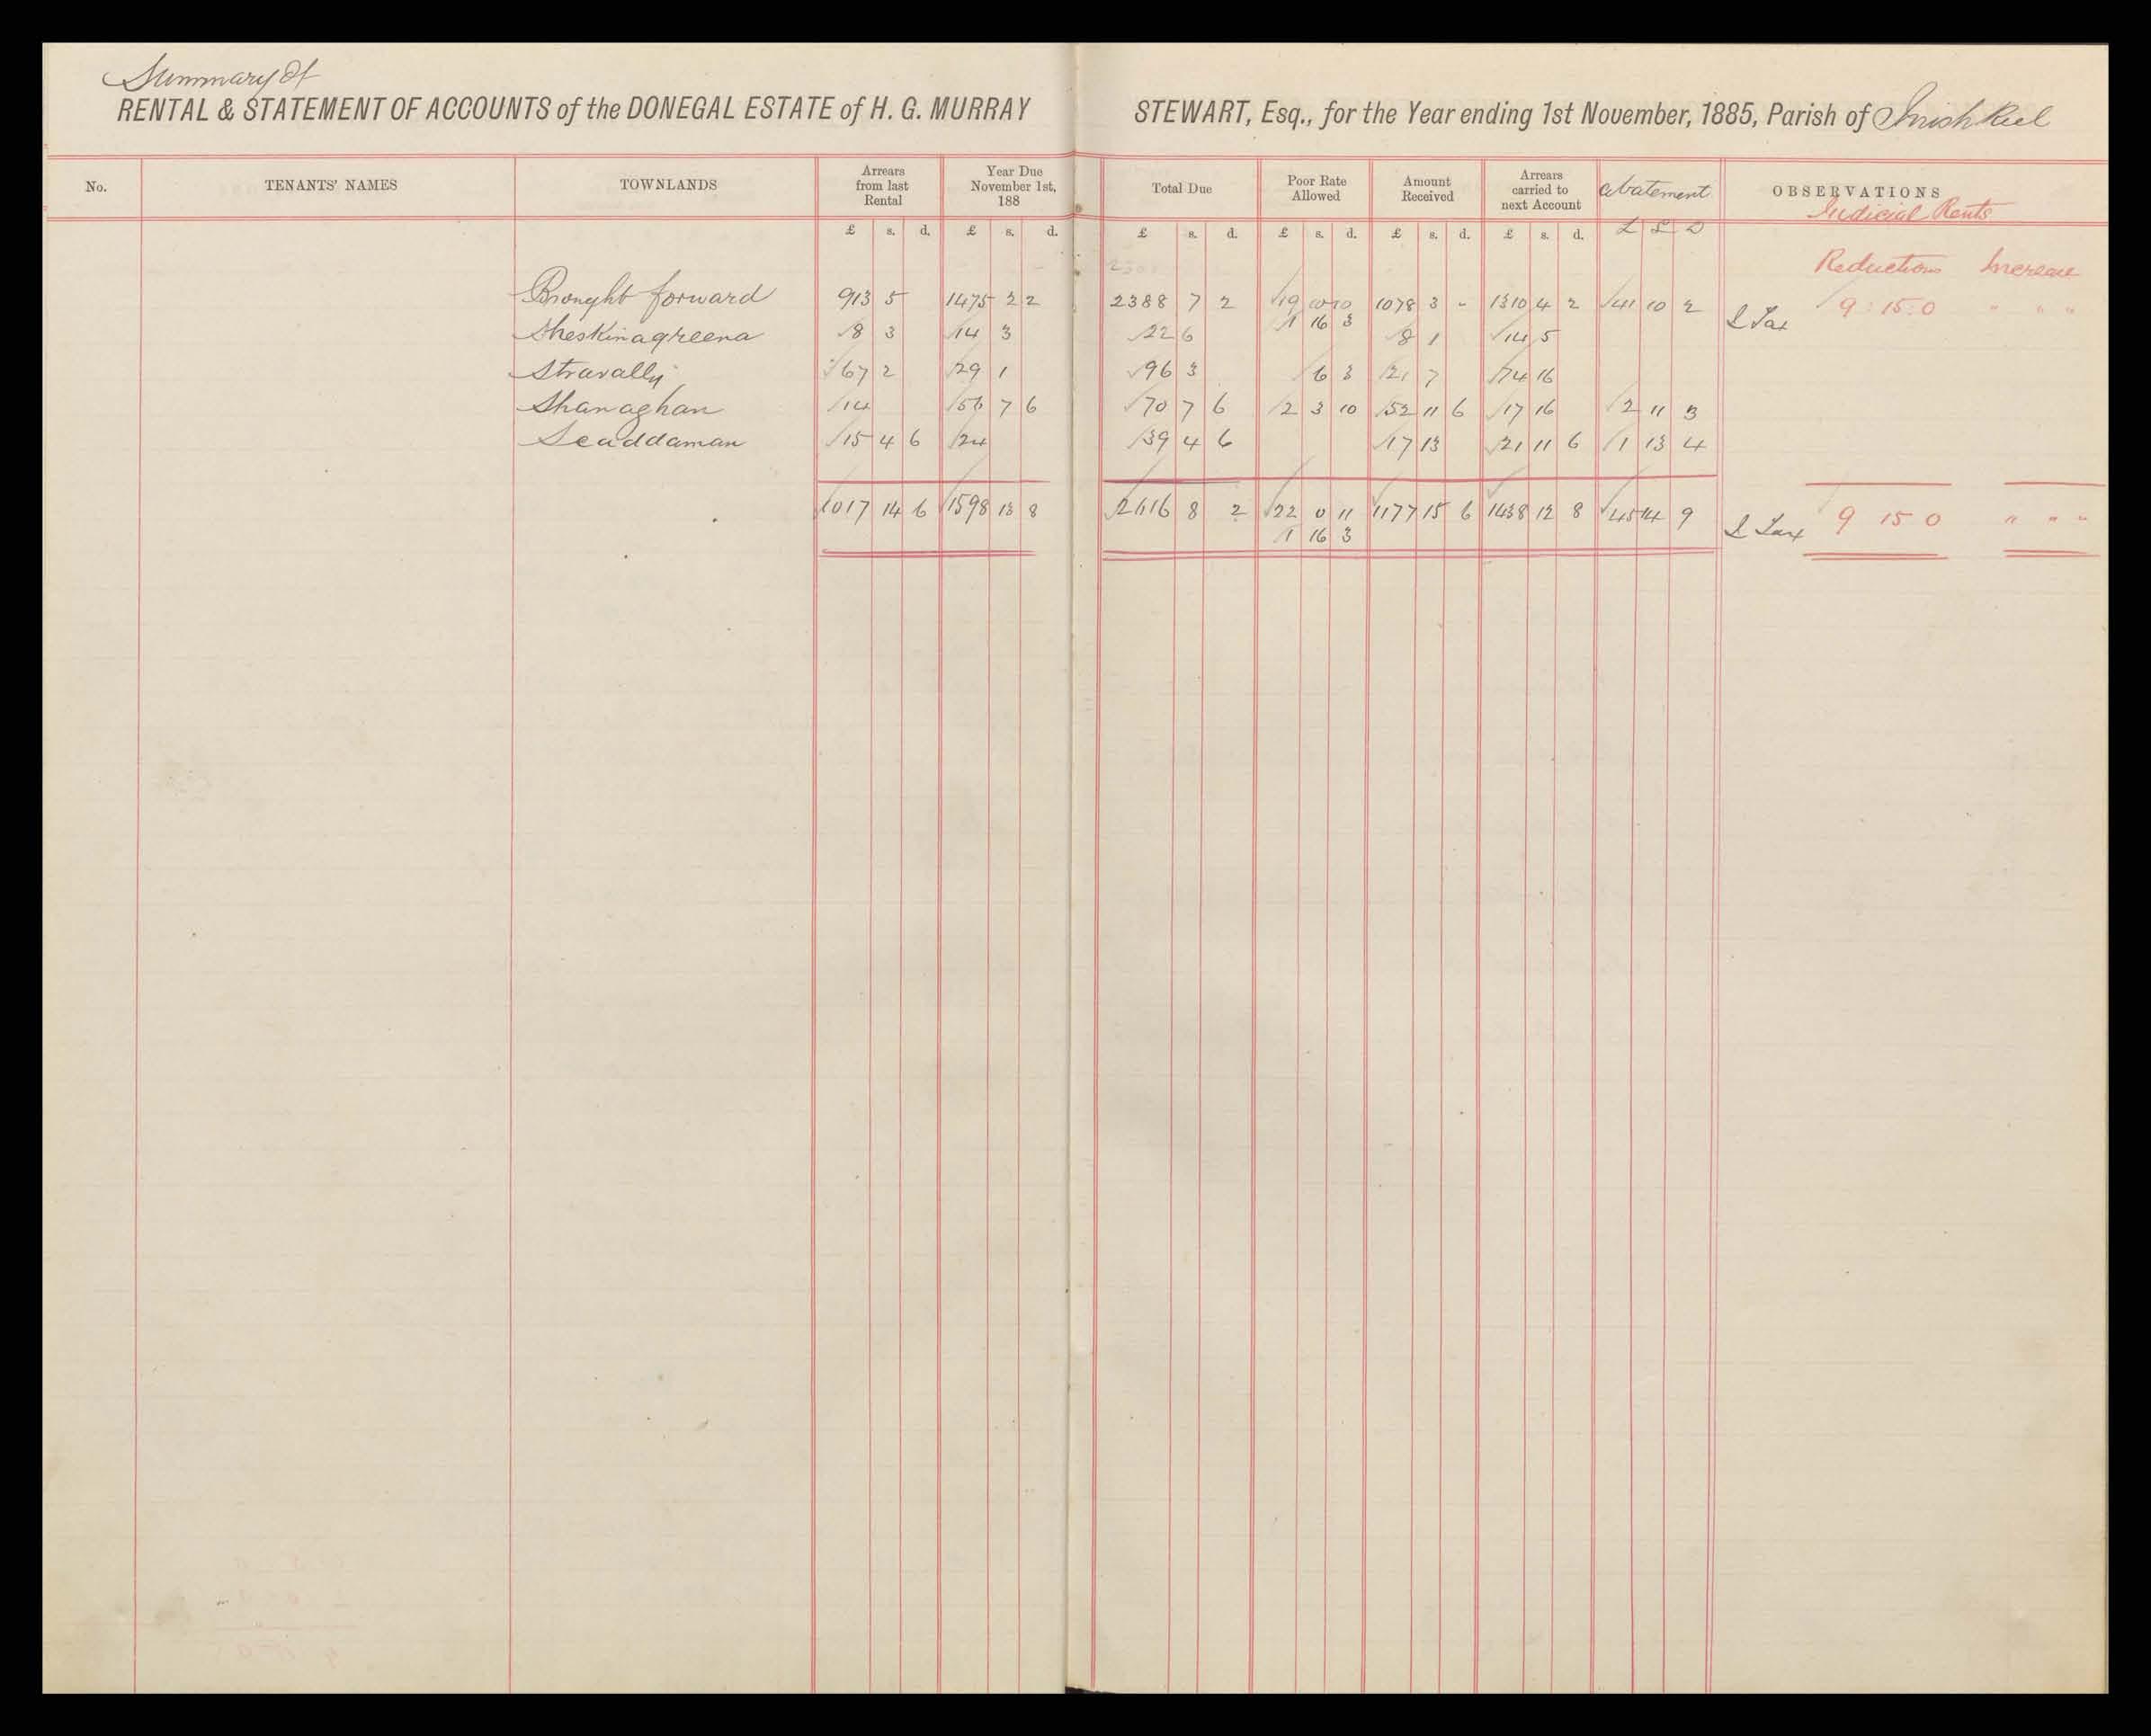 Summary of
RENTAL & STATEMENT OF ACCOUNTS of the DONEGAL ESTATE of H. G. MURRAY STEWART, Esq., for the Year ending 1st November, 1885, Parish of Inishkeel
No. TENANTS' NAMES TOWNLANDS Arrears from last Rental Year Due November 1st, 188 Total Due Poor Rate Allowed Amount Received Arrears carried to next Account Abatement OBSERVATIONS
Judicial Rents
£ s. d. £ s. d. £ s. d. £ s. d. £ s. d. £ s. d. £ S D
Reductions Increase
Brought forward 913 5 1475 2 2 2388 7 2 19 10 10 1078 3 - 1310 4 2 41 10 2 9 : 15 : 0 " " "
1 16 3 I Tax
Sheskinagreena 8 3 14 3 22 6 8 1 14 5
Stravally 67 2 29 1 96 3 6 3 21 7 74 16
Shanaghan 14 56 7 6 70 7 6 2 3 10 52 11 6 17 16 2 11 3
Scaddaman 15 4 6 24 39 4 6 17 13 21 11 6 1 13 4
1017 14 6 1598 13 8 2616 8 2 22 0 11 1177 15 6 1438 12 8 45 14 9 9 15 0 " " "
1 16 3 I Tax